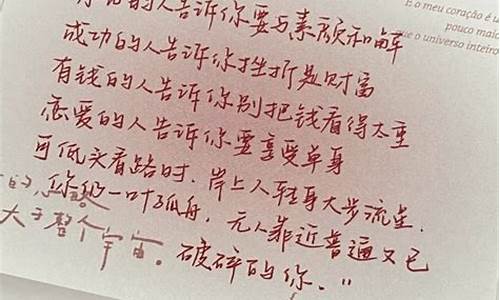 好看的人告诉你要与素颜和解
成功的人告诉你挫折是财富
有钱的人告诉你别把钱看得太重
恋爱的人告诉你要享受单身
可低头看路时，岸上人转身大步流星，
你仍一叶孤舟，无人靠近普通又已
破碎的你。”
的，
大于整个宇宙。
E o meu coração é u
pouco maio
que o universo inteiro